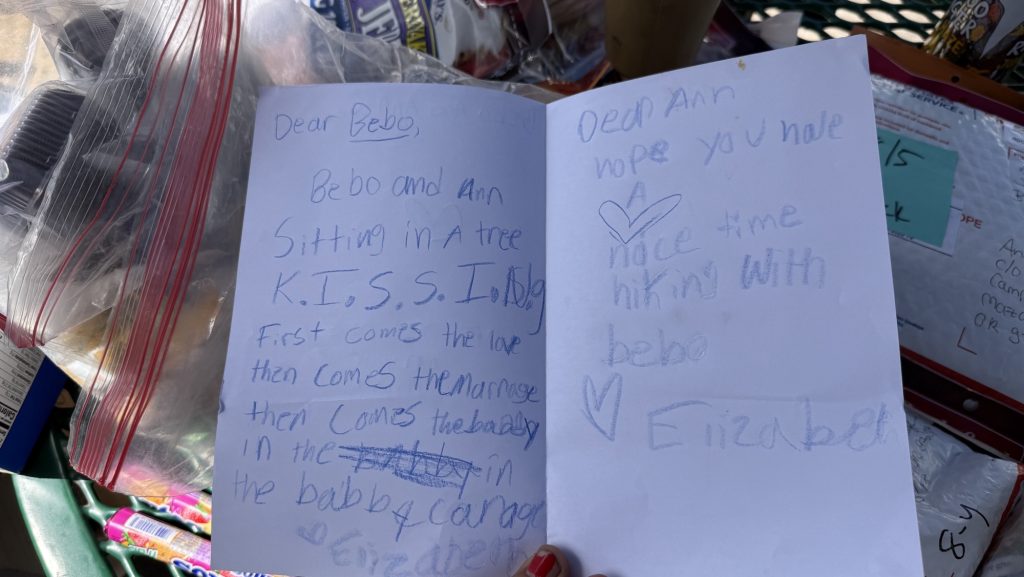 Dear Bebo,
Bebo and Ann
Sitting in A tree
K.I.S.S.I.N.g
First comes the love
then comes the marrage
then comes the babby
in the in
the babby carage
Elizabeth
Dear Ann
hope you have
A
nace time
hiking With
bebo
Elizabet
SERVICE
/5
CK
OPE
An
clo
Camp
maza
AR
L
JE